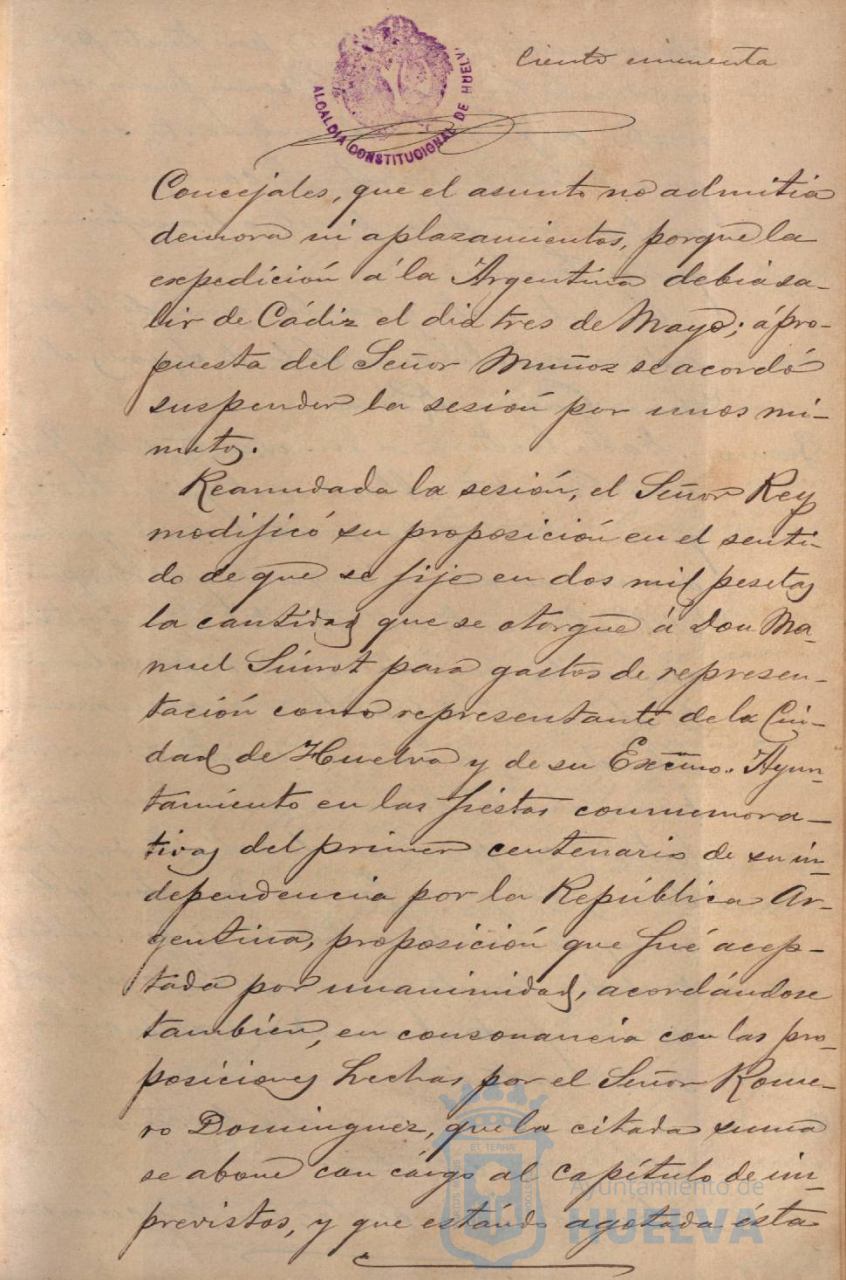 Ciento cincuenta
ALCALDIA CONSTITUCIONAL DE HUELV
Concejales, que el asunto no admitia
demora ni aplazamientos, porque la
expedición á la Argentina debia sa-
lir de Cádiz el dia tres de Mayo; á pro-
puesta del Señor Muñoz se acordó
suspender la sesión por unos mi-
nutos.
Reanudada la sesión, el Señor Rey
modificó su proposición en el senti-
do de que se fije en dos mil pesetas
la cantidad que se otorgue á Don Ma-
nuel Siurot para gastos de represen-
tación como representante de la Ciu-
dad de Huelva y de su Excmo. Ayun-
tamiento en las fiestas conmemora-
tivas del primer centenario de su in-
dependencia por la República Ar-
gentina, proposición que fué acep-
tada por unanimidad, acordándose
también, en consonancia con las pro-
posiciones hechas por el Señor Rome-
ro Dominguez, que la citada suma
se abone con cárgo al capítulo de im-
previstos, y que estándo agotada ésta
Ayuntamiento de
HUELVA